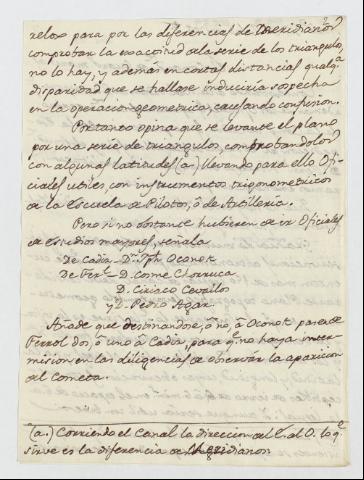 relox para por las diferencias de Meridianos
comprobar la exactitud de la serie de los triangulos,
no lo hay, y además en cortas distancias qualqa.
disparidad que se hallase induciria sospecha
en la operacion geometrica, causando confusion.
Por tanto opina que se levante el plano
por una serie de triangulos, comprobandolos
con algunas latitudes (a.) llevando para ello Ofi-
ciales utiles, con instrumentos trigonometricos
de la Escuela de Pilotos, ò de Artilleria.
Pero si no obstante hubieren de ir Oficiales
de estudios mayores, señala
De Cadiz - Dn. Jph. Oconok
De Ferl. D. Cosme Chorruca
D. Ciriaco Cevallos
y D. Pedro Agar.
Añade que destinandose, ò nò, à Oconok pasen de
Ferrol dos ò uno à Cadiz, para qe. no haya inter-
mision en las diligencias de observàr la aparicion
del Cometa.
(a.) Corriendo el Canal la direccion del E. al O. lo qe.
sirve es la diferencia de Meridianos